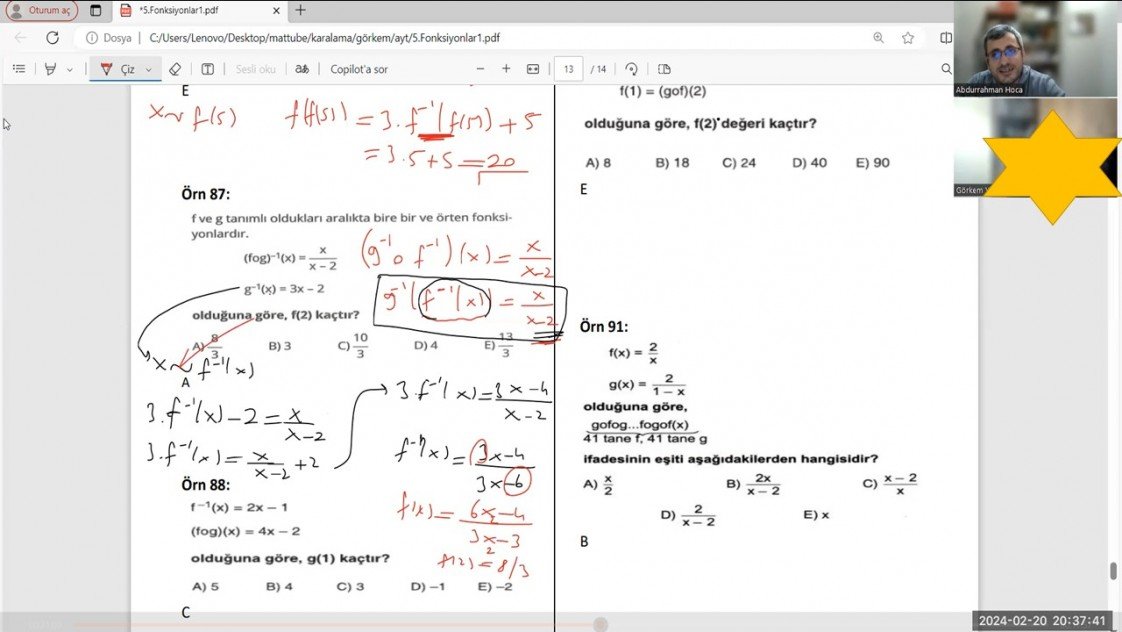 Oturum aç
*5.Fonksiyonlar1.pdf
Dosya
C:/Users/Lenovo/Desktop/mattube/karalama/görkem/ayt/5.Fonksiyonlar1.pdf
Çiz
Sesli oku
Copilot'a sor
13 / 14
Abdurrahman Hoca
Görkem
E
x ~ f(5) f(f(5)) = 3.f⁻¹(f(5)) + 5
= 3.5+5 = 20
Örn 87:
f ve g tanımlı oldukları aralıkta bire bir ve örten fonksi-
yonlardır.
(fog)⁻¹(x) = x / (x − 2)
(g⁻¹ o f⁻¹)(x) = x / (x−2)
g⁻¹(x) = 3x − 2
g⁻¹(f⁻¹(x)) = x / (x−2)
olduğuna göre, f(2) kaçtır?
A) 8/3 B) 3 C) 10/3 D) 4 E) 13/3
x ~ f⁻¹(x)
A
3.f⁻¹(x) − 2 = x / (x−2)
3.f⁻¹(x) = x / (x−2) + 2
3.f⁻¹(x) = (3x−4) / (x−2)
f⁻¹(x) = (3x−4) / (3x−6)
f(x) = (6x−4) / (3x−3)
f(2) = 8/3
Örn 88:
f⁻¹(x) = 2x − 1
(fog)(x) = 4x − 2
olduğuna göre, g(1) kaçtır?
A) 5 B) 4 C) 3 D) −1 E) −2
C
f(1) = (gof)(2)
olduğuna göre, f(2) değeri kaçtır?
A) 8 B) 18 C) 24 D) 40 E) 90
E
Örn 91:
f(x) = 2/x
g(x) = 2 / (1 − x)
olduğuna göre,
gofog...fogof(x)
41 tane f, 41 tane g
ifadesinin eşiti aşağıdakilerden hangisidir?
A) x/2 B) 2x / (x − 2) C) (x − 2) / x
D) 2 / (x − 2) E) x
B
2024-02-20 20:37:41